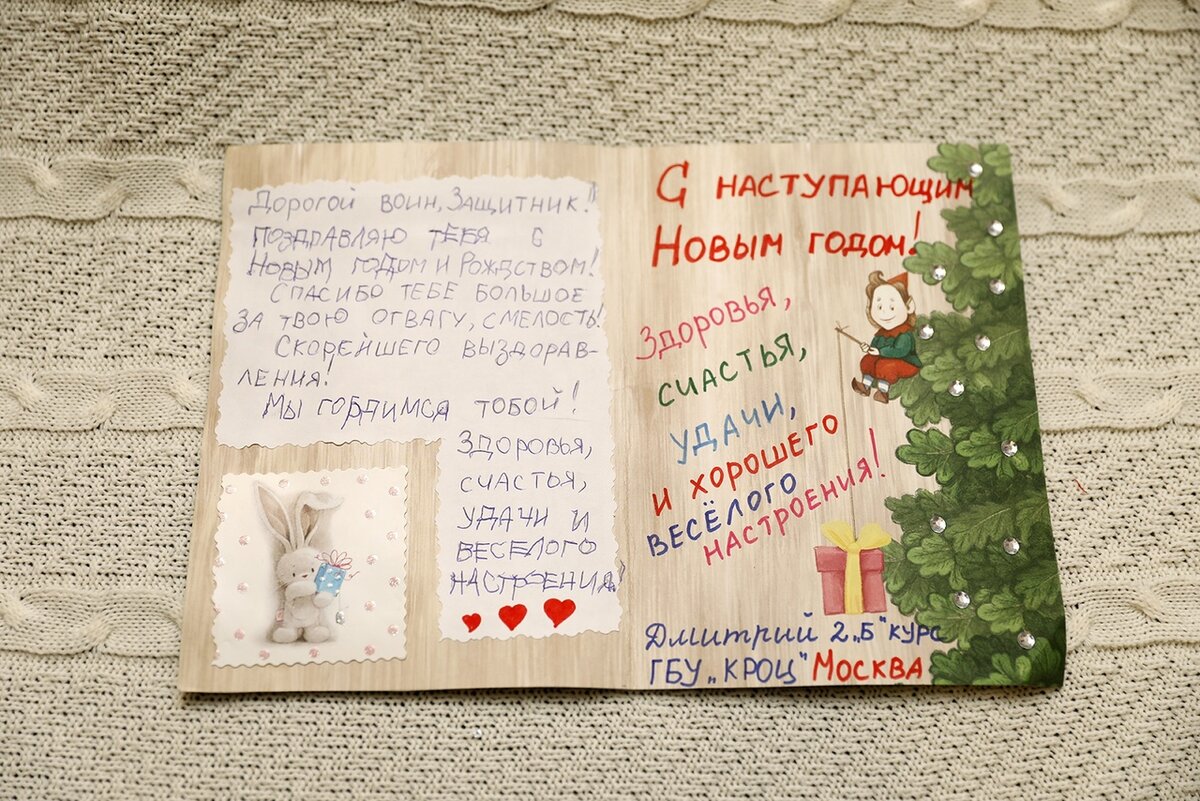 Дорогой воин, Защитник!
Поздравляю тебя с
Новым годом и Рождством!
Спасибо тебе большое
за твою отвагу, смелость!
Скорейшего выздорав-
ления!
Мы гордимся тобой!
Здоровья,
счастья,
удачи и
веселого
настроения!
С наступающим
Новым годом!
Здоровья,
счастья,
удачи,
и хорошего
весёлого
настроения!
Дмитрий 2„Б" курс
ГБУ „КРОЦ" Москва